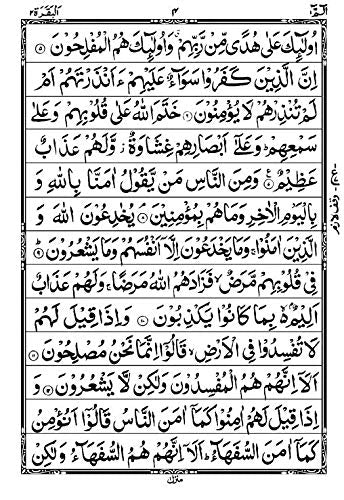 البقرة ٢ ٤ الٓمّٓ ١
اُولٰٓئِكَ عَلٰى هُدًى مِّنْ رَّبِّهِمْ ۙ وَاُولٰٓئِكَ هُمُ الْمُفْلِحُوْنَ ۝۵
اِنَّ الَّذِيْنَ كَفَرُوْا سَوَآءٌ عَلَيْهِمْ ءَاَنْذَرْتَهُمْ اَمْ
لَمْ تُنْذِرْهُمْ لَا يُؤْمِنُوْنَ ۝۶ خَتَمَ اللّٰهُ عَلٰى قُلُوْبِهِمْ وَعَلٰى
سَمْعِهِمْ ؕ وَعَلٰٓى اَبْصَارِهِمْ غِشَاوَةٌ ؗ وَّلَهُمْ عَذَابٌ
عَظِيْمٌ ۝۷ وَمِنَ النَّاسِ مَنْ يَّقُوْلُ اٰمَنَّا بِاللّٰهِ وَ
بِالْيَوْمِ الْاٰخِرِ وَمَا هُمْ بِمُؤْمِنِيْنَ ۝۸ يُخٰدِعُوْنَ اللّٰهَ وَ
الَّذِيْنَ اٰمَنُوْا ۚ وَمَا يَخْدَعُوْنَ اِلَّاۤ اَنْفُسَهُمْ وَمَا يَشْعُرُوْنَ ۝۹
فِيْ قُلُوْبِهِمْ مَّرَضٌ ۙ فَزَادَهُمُ اللّٰهُ مَرَضًا ۚ وَلَهُمْ عَذَابٌ
اَلِيْمٌۢ ۙ بِمَا كَانُوْا يَكْذِبُوْنَ ۝۱۰ وَاِذَا قِيْلَ لَهُمْ
لَا تُفْسِدُوْا فِي الْاَرْضِ ۙ قَالُوْٓا اِنَّمَا نَحْنُ مُصْلِحُوْنَ ۝۱۱
اَلَاۤ اِنَّهُمْ هُمُ الْمُفْسِدُوْنَ وَلٰكِنْ لَّا يَشْعُرُوْنَ ۝۱۲ وَ
اِذَا قِيْلَ لَهُمْ اٰمِنُوْا كَمَآ اٰمَنَ النَّاسُ قَالُوْٓا اَنُؤْمِنُ
كَمَآ اٰمَنَ السُّفَهَآءُ ؕ اَلَاۤ اِنَّهُمْ هُمُ السُّفَهَآءُ وَلٰكِنْ
منزل